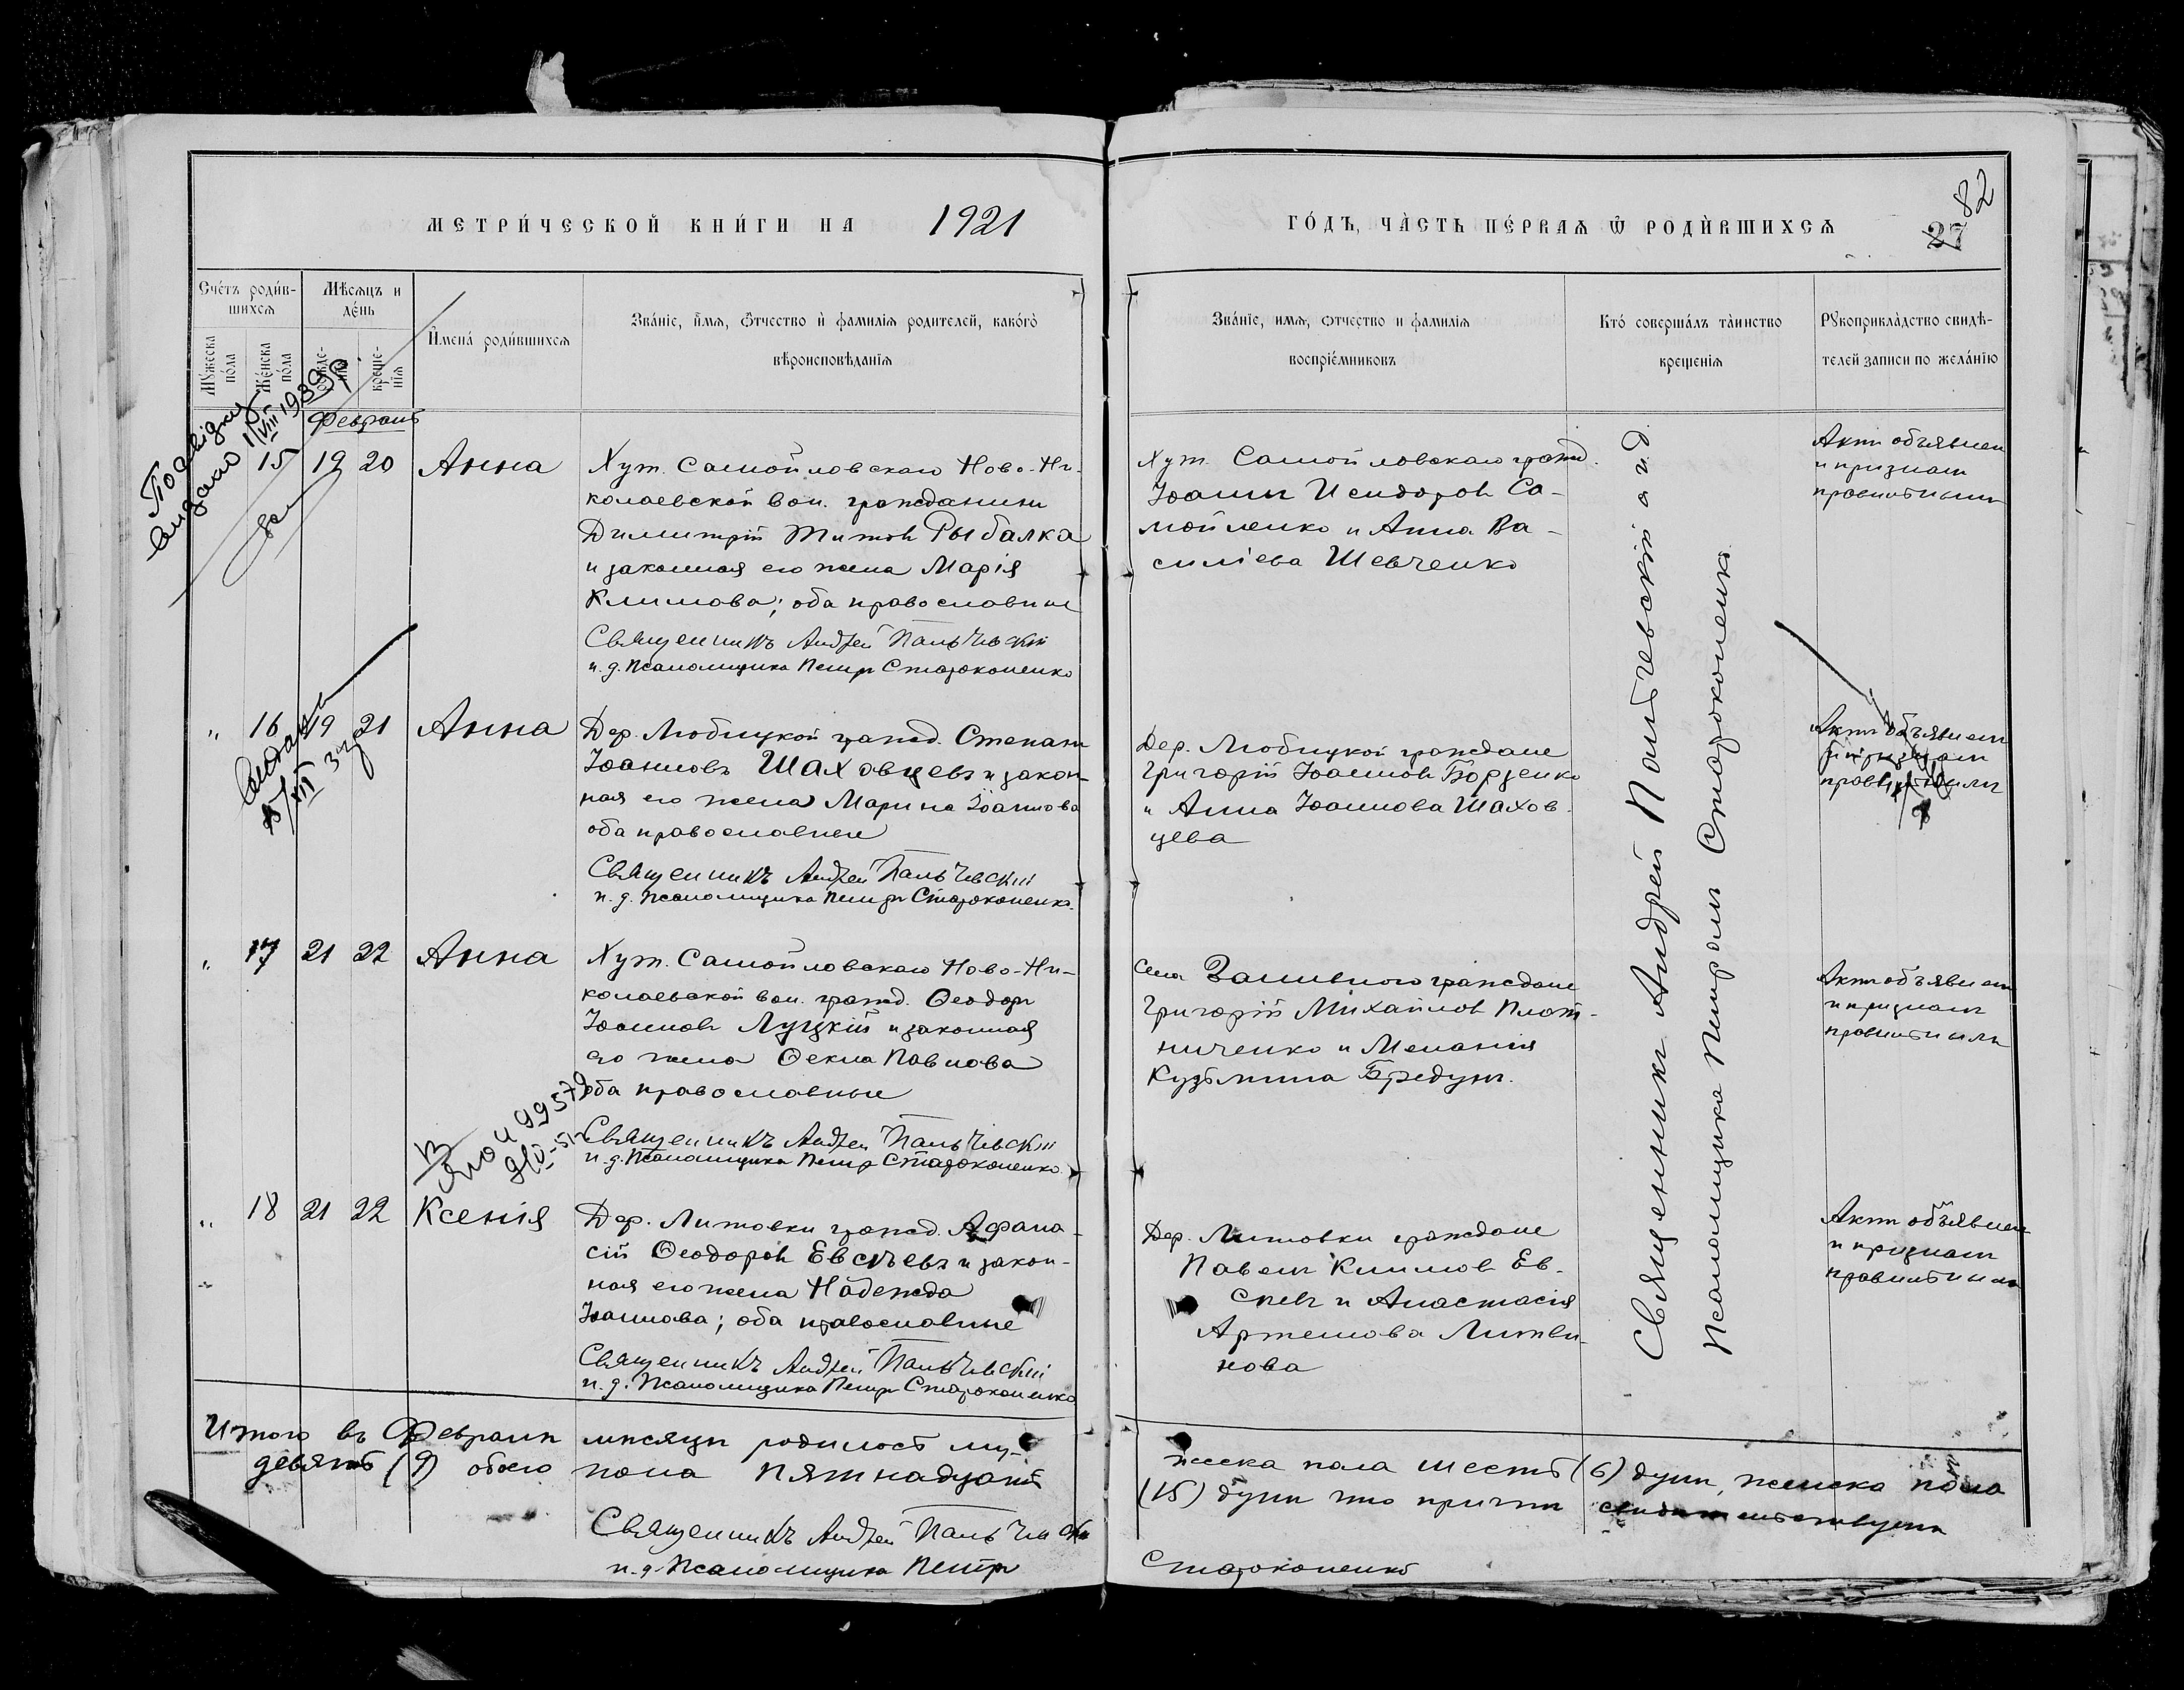 МЕТРИ́ЧЕСКОЙ КНИ́ГИ НА 1921
ГО́ДЪ, ЧА̀СТЬ ПЕ́РВАѦ Ѿ РОДИ́ВШИХСѦ
82
27
Сче́тъ роди́в-
шихсѧ
Мѣсѧцъ и
де́нь
Мꙋжеска
по́ла
Же́нска
по́ла
креще-
нїѧ
И҆мена̀ роди́вшихсѧ
Зва́нїе, и҆́мѧ, ѻ҆́тчество и҆ фамилїѧ родителей, како́гѡ
вѣроисповѣданїѧ
Зва́нїе, имѧ, ѻтчество и фамилїѧ
воспрїе́мниковъ
Кто̀ соверша́лъ та̀инство
крещенїѧ
Рꙋкоприкла̀дство свидѣ-
телей записи по жела́нїю
Февраль
15 19 20 Анна
Хут. Самойловскаго Ново-Ни-
колаевской вол. гражданинъ
Димитрій Титовъ Рыбалка
и законная его жена Марія
Климова; оба православные
Священникъ Андрей Пальчевскій
и. д. Псаломщика Петръ Староконенко
Хут. Самойловскаго гражд.
Іоаннъ Исидоровъ Са-
мойленко и Анна Ва-
силіева Шевченко
Актъ объявленъ
и признанъ
правильнымъ
„ 16 19 21 Анна
Дер. Любицкой гражд. Стефанъ
Іоанновъ Шаховцевъ и закон-
ная его жена Марина Іоаннова
оба православные
Священникъ Андрей Пальчевскій
и. д. Псаломщика Петръ Староконенко
Дер. Любицкой граждане
Григорій Іоанновъ Борзенко
и Анна Іоаннова Шахов-
цева
Актъ объявленъ
и признанъ
правильнымъ
„ 17 21 22 Анна
Хут. Самойловскаго Ново-Ни-
колаевской вол. гражд. Ѳеодоръ
Іоанновъ Луцкій и законная
его жена Ѳекла Павлова
оба православные
Священникъ Андрей Пальчевскій
и. д. Псаломщика Петръ Староконенко
Села Заливного граждане
Григорій Михайловъ Плот-
ниченко и Меланія
Кузьмина Бредунъ.
Актъ объявленъ
и признанъ
правильнымъ
„ 18 21 22 Ксенія
Дер. Литовки гражд. Афана-
сій Ѳеодоровъ Евсѣевъ и закон-
ная его жена Надежда
Іоаннова; оба православные
Священникъ Андрей Пальчевскій
и. д. Псаломщика Петръ Староконенко
Дер. Литовки граждане
Павелъ Климовъ Ев-
сѣевъ и Анастасія
Артемова Литви-
нова
Актъ объявленъ
и признанъ
правильнымъ
Священникъ Андрей Пальчевскій а и. д.
Псаломщика Петръ Староконенко
Итого въ Февралѣ мѣсяцѣ родилось му-
жеска пола шесть (6) душъ, женска пола
девять (9) обоего пола пятнадцать
(15) душъ что причтъ свидѣтельствуетъ
Священникъ Андрей Пальчевскій
и. д. Псаломщика Петръ Староконенко